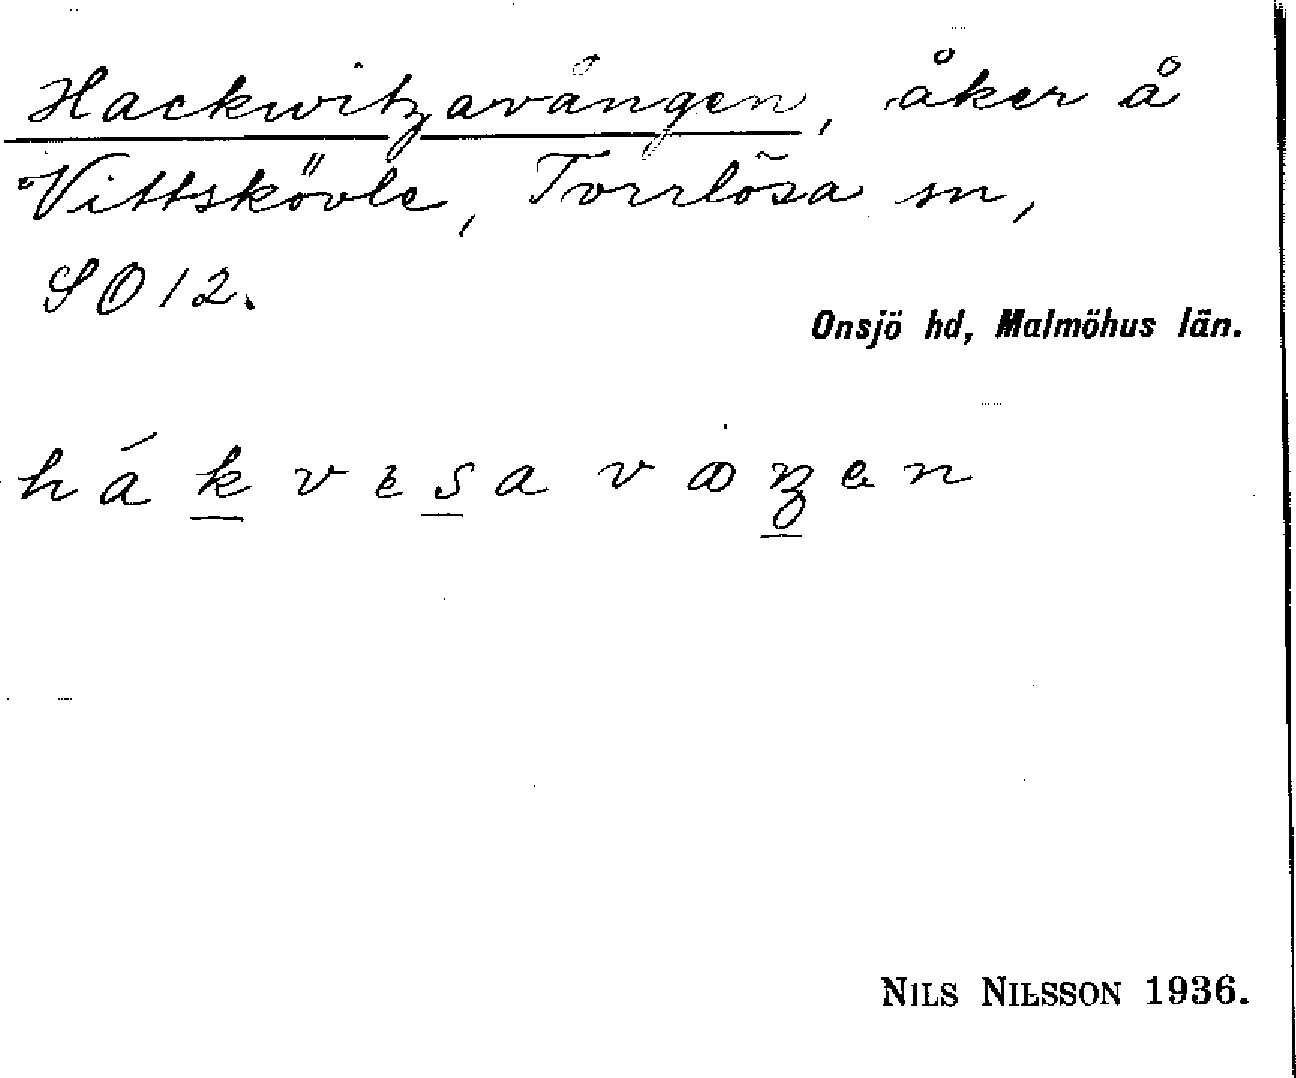 Hackwitzavången, åker å
Vittskövle, Torrlösa sn,
SO 12.
Onsjö hd, Malmöhus län.
hákvesavaŋen
NILS NILSSON 1936.